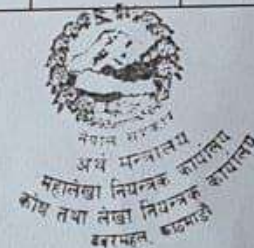 नेपाल सरकार
अर्थ मन्त्रालय
महालेखा नियन्त्रक कार्यालय
कोष तथा लेखा नियन्त्रक कार्यालय
बबरमहल, काठमाडौं